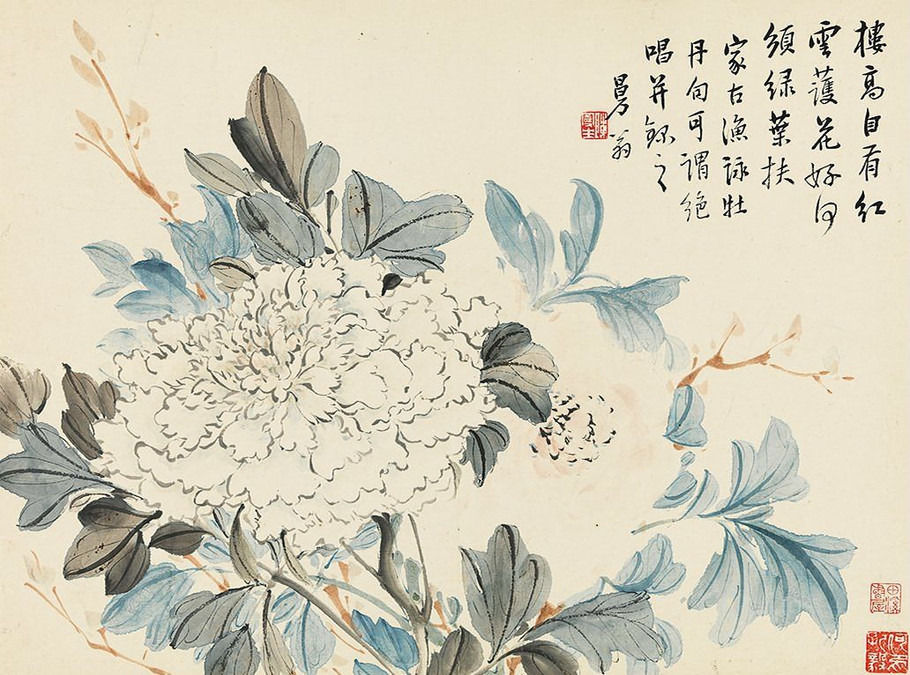 樓高自有紅
雲護花好何
須綠葉扶
家古漁詠牡
丹句可謂絕
唱并錄之
翁
田溪書屋